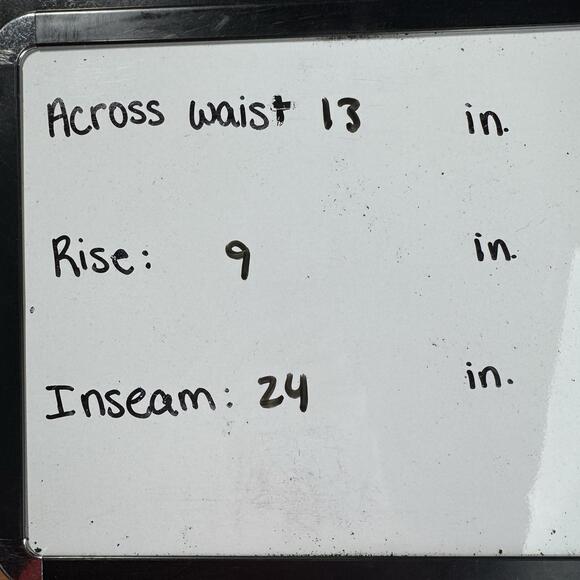 Across waist 13 in.
Rise: 9 in.
Inseam: 24 in.